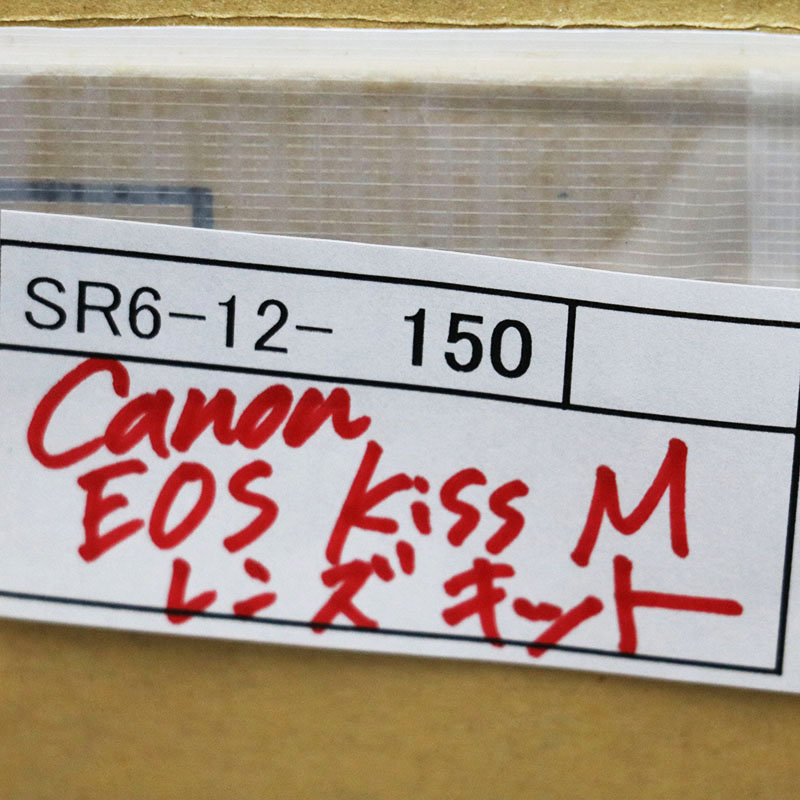 SR6-12- 150
Canon
EOS Kiss M
レンズキット